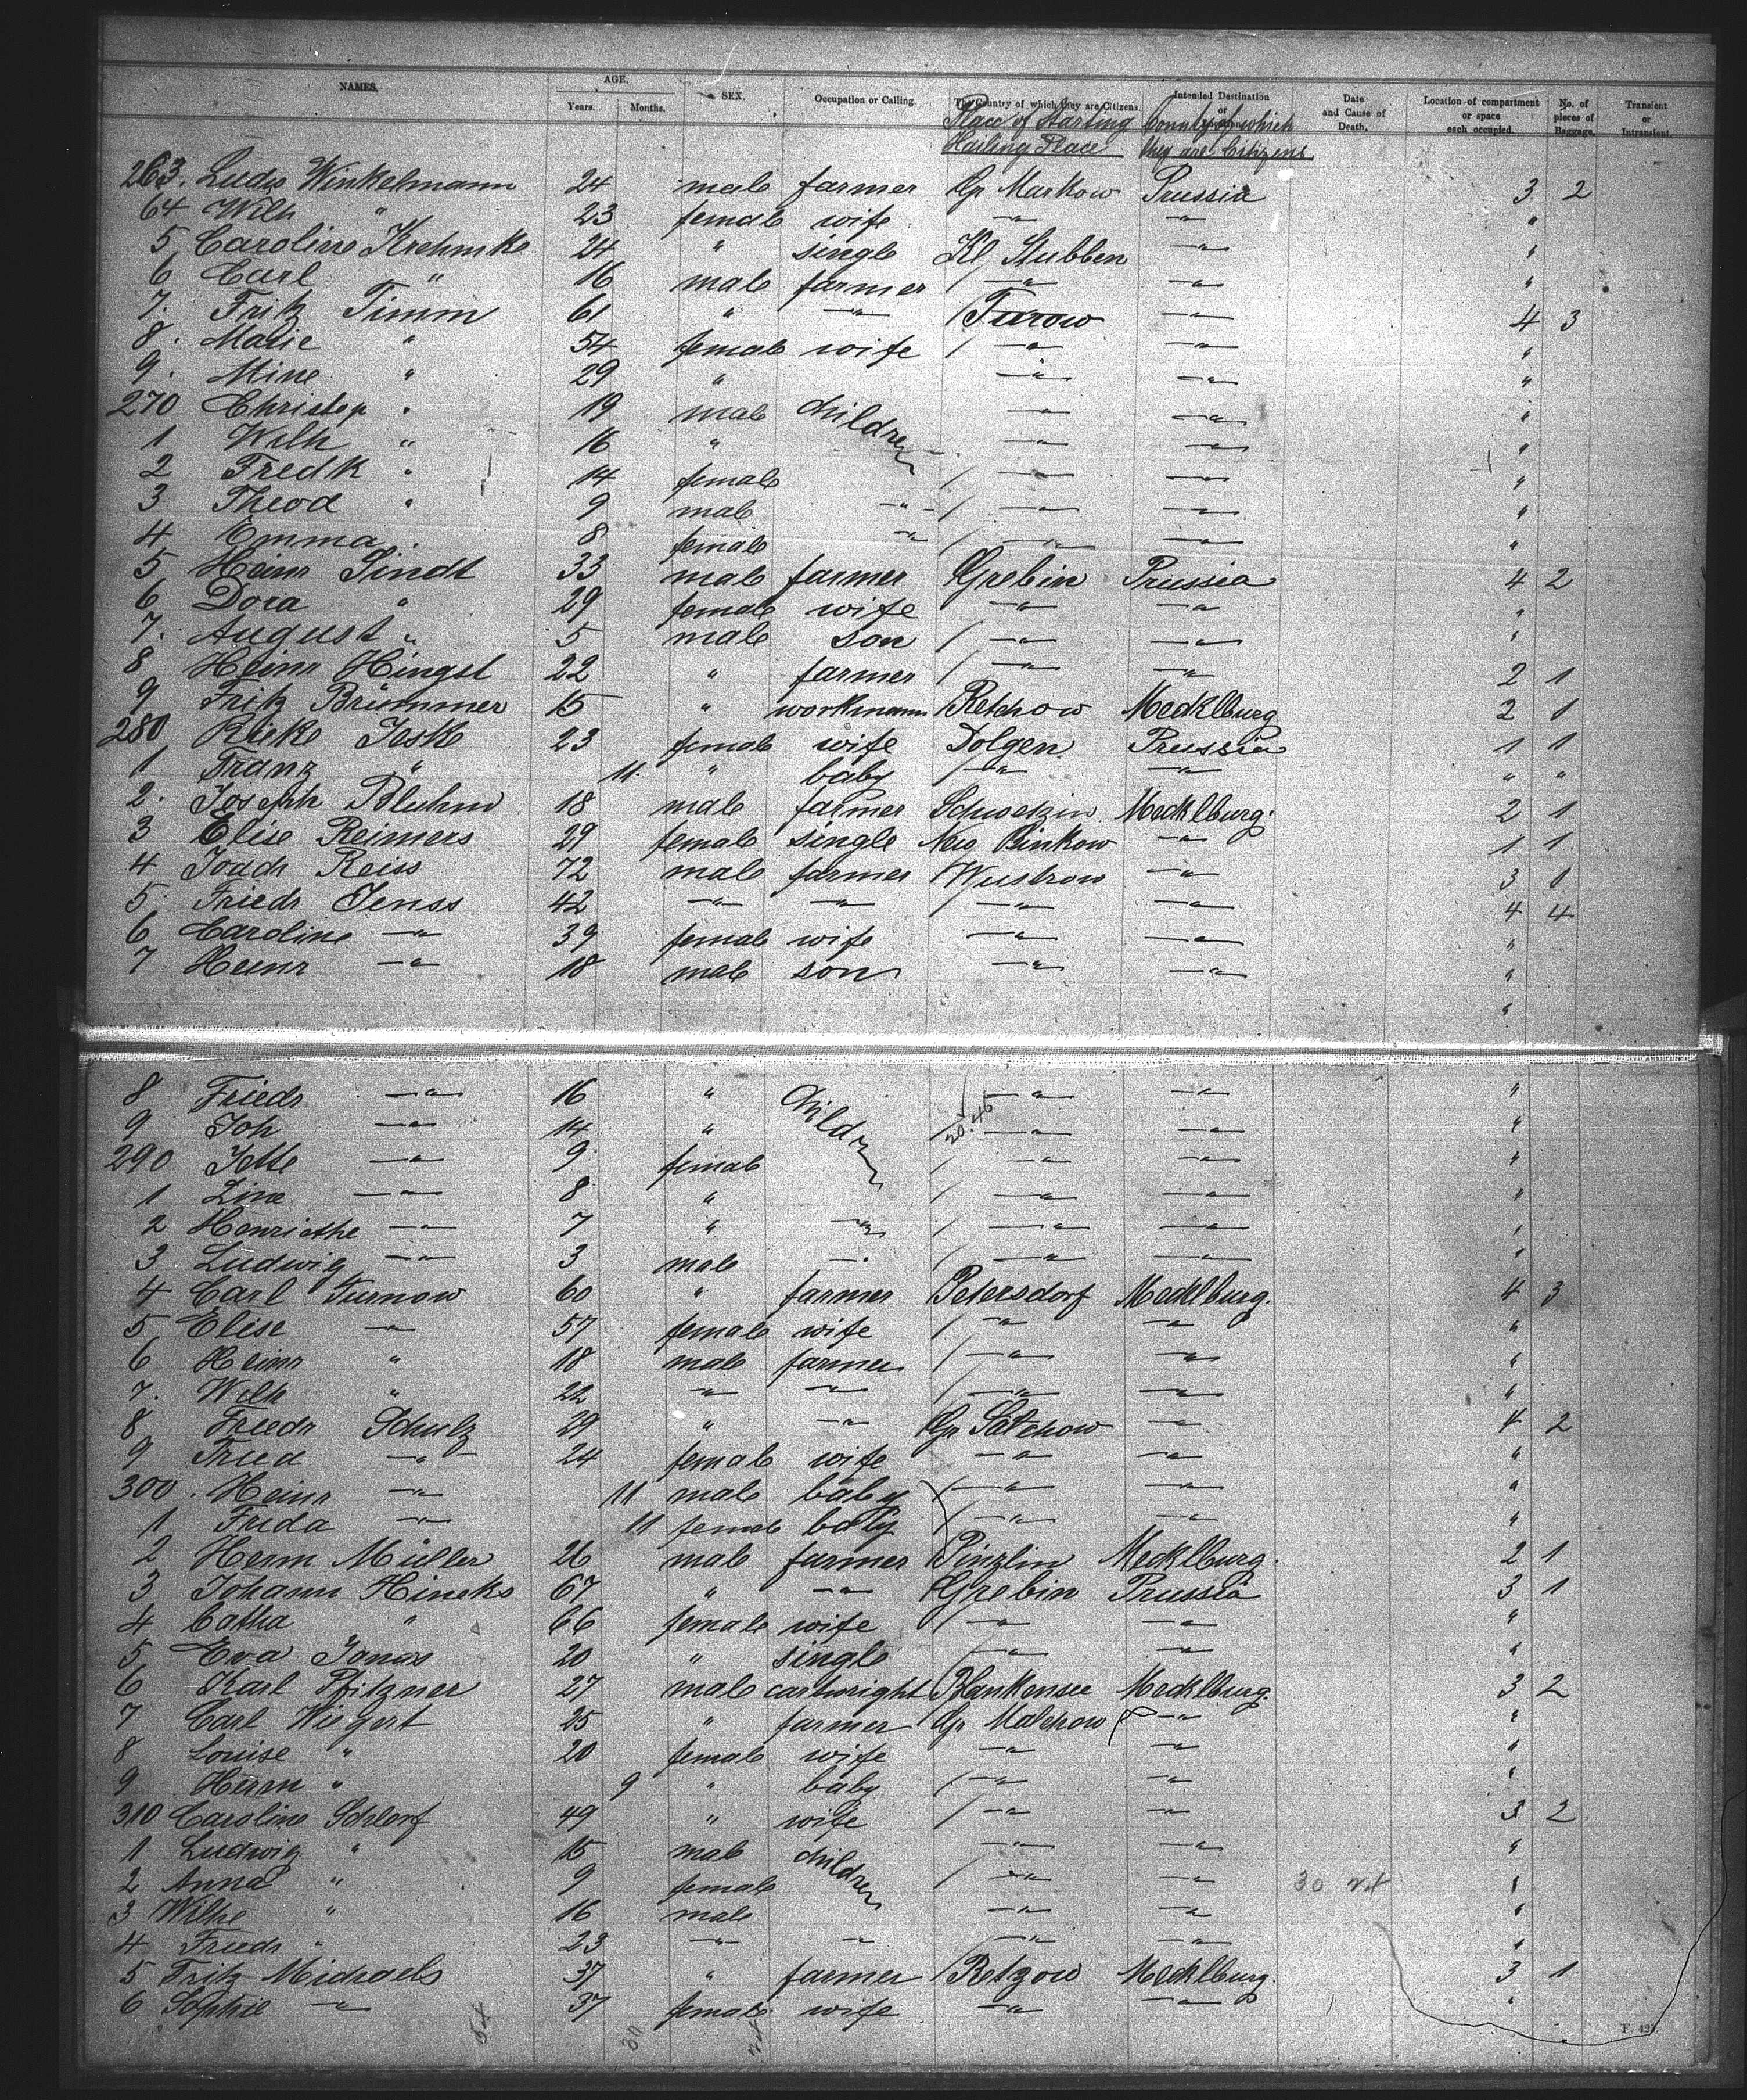 NAMES. AGE. Years. Months. SEX. Occupation or Calling. The Country of which they are Citizens. Intended Destination or Date and Cause of Death. Location of compartment or space each occupied. No. of pieces of Baggage. Transient or Intransient.
Place of Starting Country of which
Hailing Place they are Citizens
263. Ludw Winkelmann 24 male farmer Gr Markow Prussia 3 2
64 Wilh " 23 female wife —"— —"— "
5 Caroline Krehmke 24 " single Kl Stubben —"— "
6 Carl " 16 male farmer —"— —"— "
7. Fritz Timm 61 " —"— Turow —"— 4 3
8. Marie " 54 female wife —"— —"— "
9. Mine " 29 " —"— —"— "
270 Christop " 19 male children —"— —"— "
1 Wilh " 16 " —"— —"— "
2 Fredk " 14 female —"— —"— "
3 Theod " 9 male —"— —"— —"— "
4 Emma 8 female —"— —"— —"— "
5 Heinr Sindt 33 male farmer Grebin Prussia 4 2
6 Dora " 29 female wife —"— —"— "
7. August " 5 male son —"— —"— "
8 Heinr Hingst 22 " farmer —"— —"— 2 1
9 Fritz Brümmer 15 " workmann Retchow Mecklburg 2 1
280 Rieke Jeske 23 female wife Dolgen Prussia 1 1
1 Franz " 11. " baby —"— —"— " "
2. Joseph Bluhm 18 male farmer Schwetzin Mecklburg. 2 1
3 Elise Reimers 29 female single Neu —"— 1 1
4 Joach Reiss 72 male farmer Wustrow —"— 3 1
5. Friedr Jenss 42 —"— —"— —"— —"— 4 4
6 Caroline —"— 39 female wife —"— —"— "
7 Heinr —"— 18 male son —"— —"— "
"
8 Friedr —"— 16 " children —"— —"— "
9 Joh —"— 14 " —"— —"— "
290 Jette —"— 9 female —"— —"— "
1 Line —"— 8 " —"— —"— "
2 Henriethe —"— 7 " —"— —"— —"— "
3 Ludwig —"— 3 male —"— —"— "
4 Carl Turnow 60 " farmer Petersdorf Mecklburg. 4 3
5 Elise —"— 57 female wife —"— —"— "
6 Heinr " 18 male farmer —"— —"— "
7. Wilh " 22 —"— —"— —"— —"— "
8 Friedr Schulz 29 " —"— Gr —"— 4 2
9 Fried —"— 24 female wife —"— —"— "
300. Heinr —"— 11 male baby —"— —"— "
1 Frieda —"— 11 female baby —"— —"— "
2 Herm Müller 26 male farmer Pinzlin Mecklburg. 2 1
3 Johann Hineks 67 " —"— Grebin Prussia 3 1
4 Catha " 66 female wife —"— —"— "
5 Eva Jonas 20 " single —"— —"— "
6 Karl Pfitzner 27 male cartwright Blankensee Mecklburg. 3 2
7 Carl Wiegert 25 " farmer Gr Malchow —"— "
8 Louise " 20 female wife —"— —"— "
9 Herm " 9 " baby —"— —"— "
310 Caroline Schlorf 49 " wife —"— —"— 3 2
1 Ludwig " 15 male children —"— —"— "
2 Anna " 9 female —"— —"— 30 "
3 Wilhe " 16 male —"— —"— "
4 Friedr " 23 —"— —"— —"— —"— "
5 Fritz Michaels 37 " farmer Retzow Mecklburg. 3 1
6 Sophie —"— 37 female wife —"— —"— "